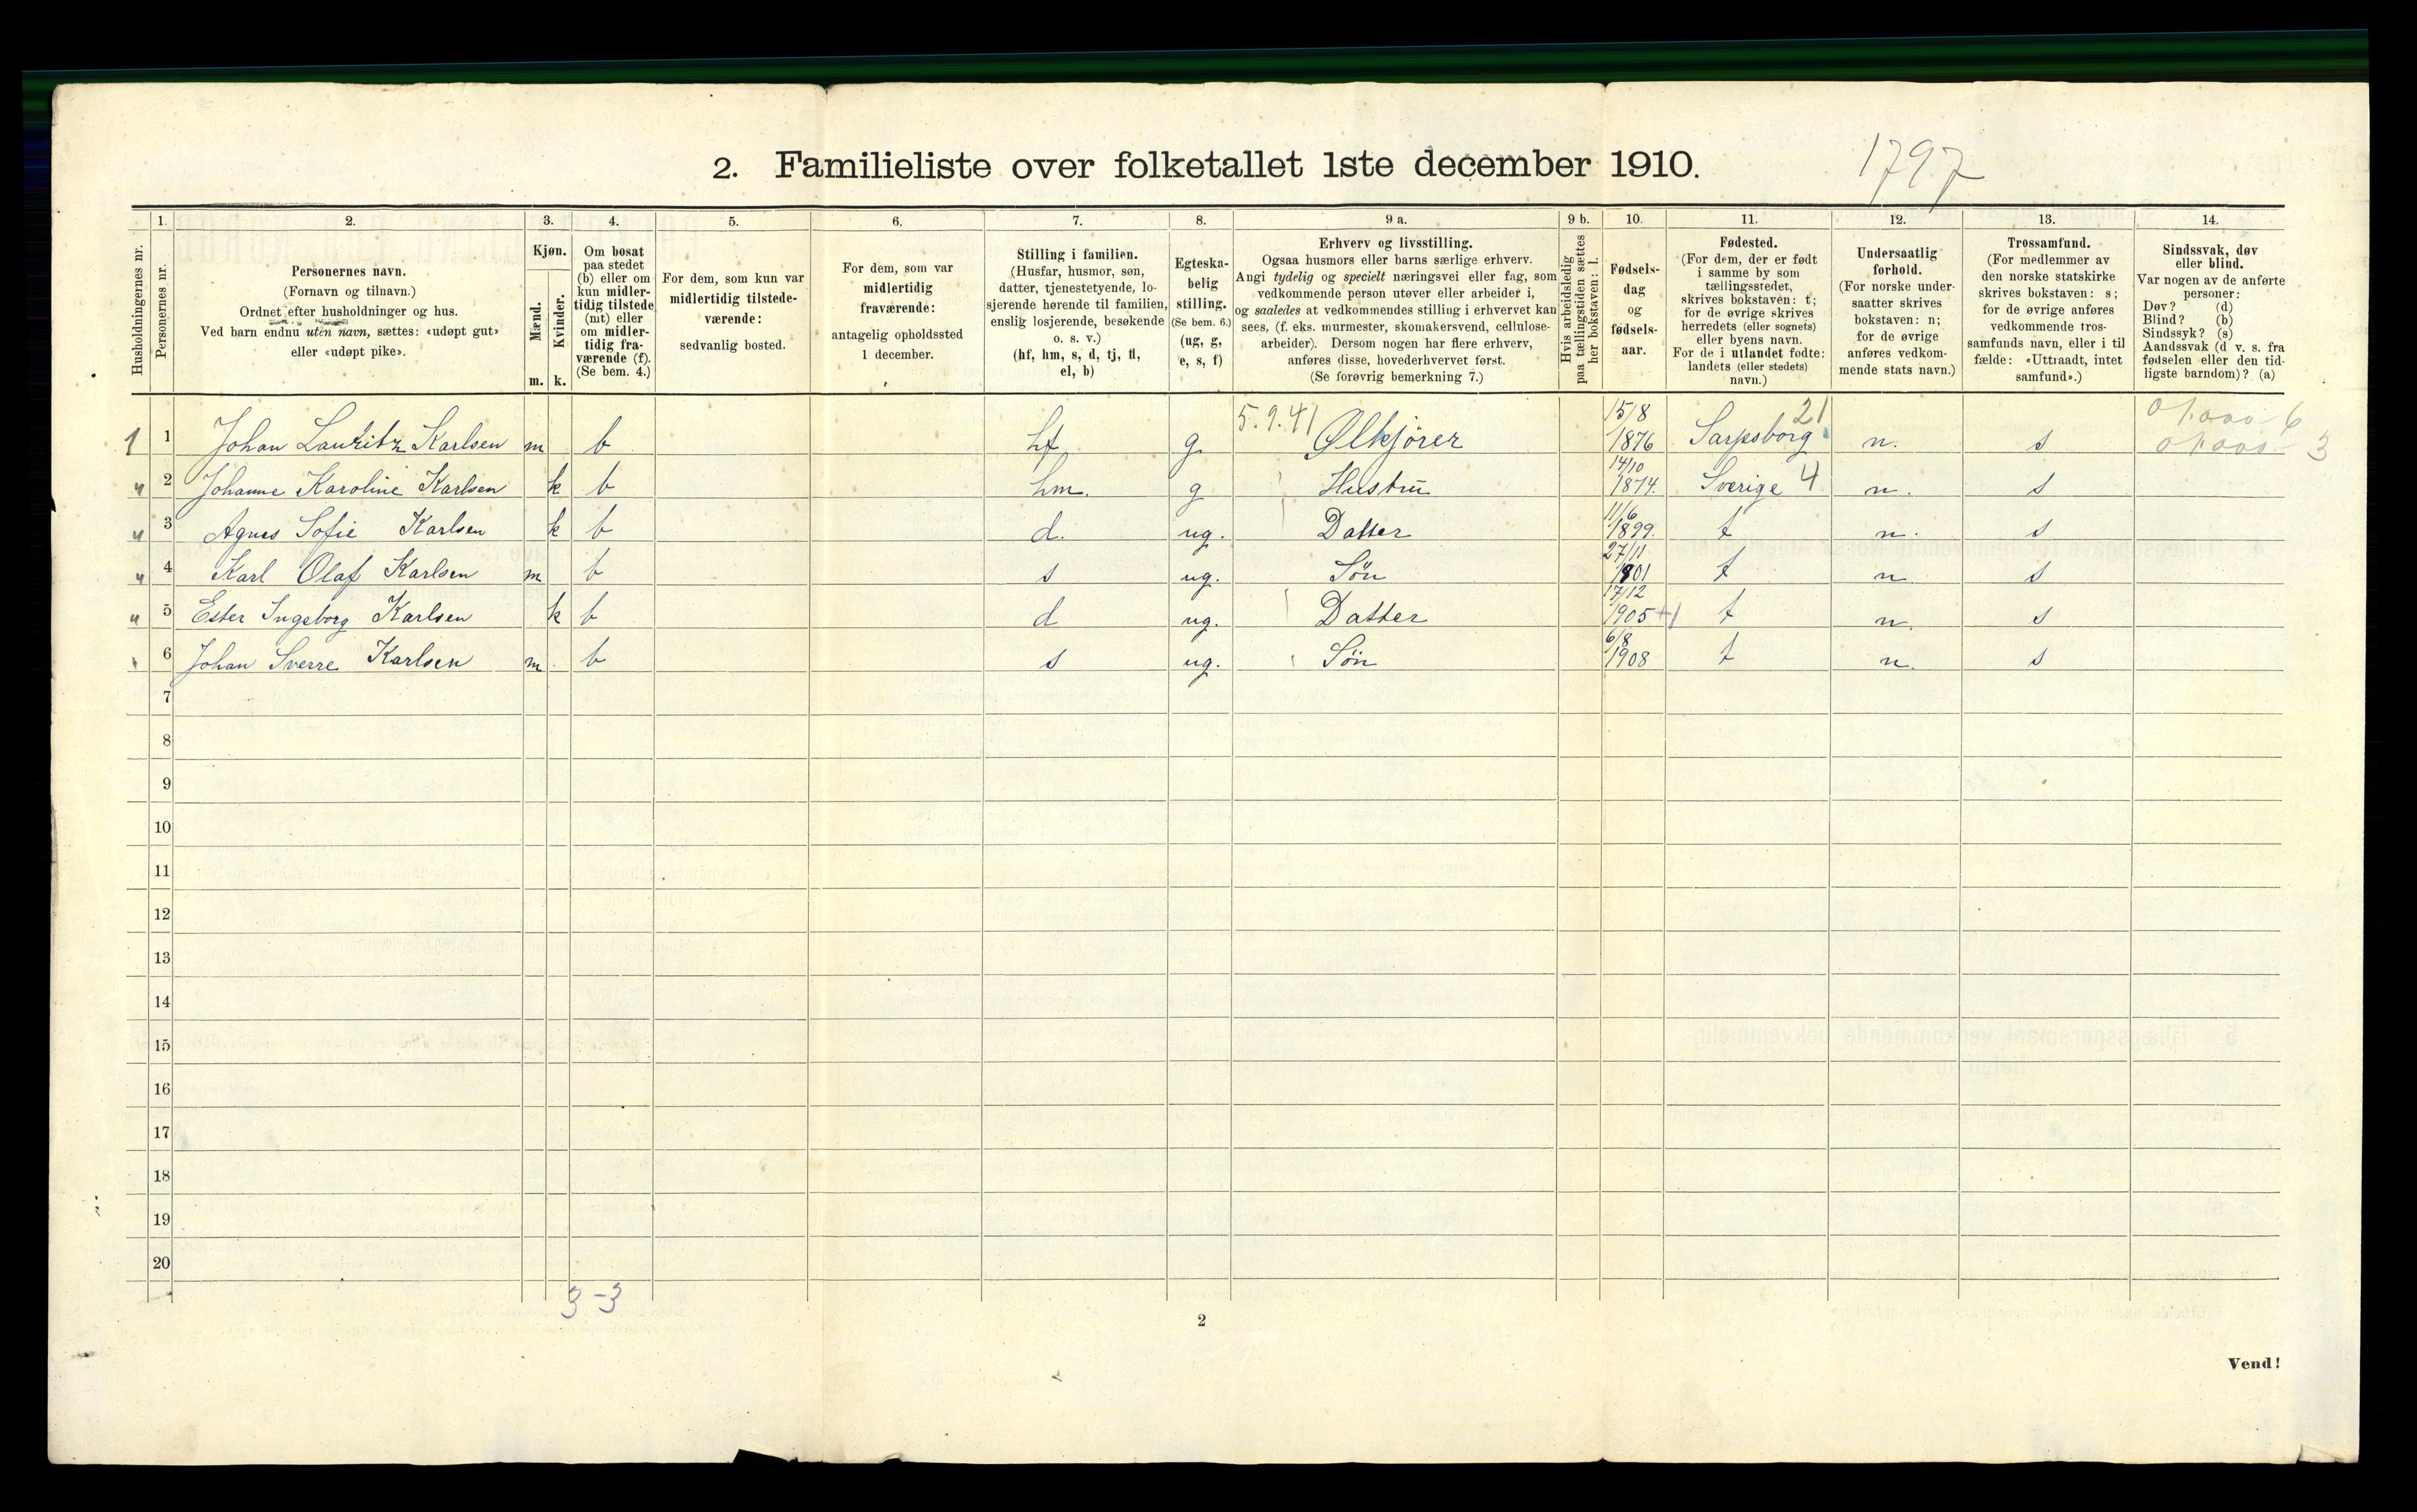 2. Familieliste over folketallet 1ste december 1910.
1797
1. 2. 3. 4. 5. 6. 7. 8. 9 a. 9 b. 10. 11. 12. 13. 14.
Husholdningernes nr.
Personernes nr.
Personernes navn.
(Fornavn og tilnavn.)
Ordnet efter husholdninger og hus.
Ved barn endnu uten navn, sættes: «udøpt gut»
eller «udøpt pike».
Kjøn.
Mænd.
Kvinder.
m. k.
Om bosat
paa stedet
(b) eller om
kun midler-
tidig tilstede
(mt) eller
om midler-
tidig fra-
værende (f).
(Se bem. 4.)
For dem, som kun var
midlertidig tilstede-
værende:
sedvanlig bosted.
For dem, som var
midlertidig
fraværende:
antagelig opholdssted
1 december.
Stilling i familien.
(Husfar, husmor, søn,
datter, tjenestetyende, lo-
sjerende hørende til familien,
enslig losjerende, besøkende
o. s. v.)
(hf, hm, s, d, tj, fl,
el, b)
Egteska-
belig
stilling.
(Se bem. 6.)
(ug, g,
e, s, f)
Erhverv og livsstilling.
Ogsaa husmors eller barns særlige erhverv.
Angi tydelig og specielt næringsvei eller fag, som
vedkommende person utøver eller arbeider i,
og saaledes at vedkommendes stilling i erhvervet kan
sees, (f. eks. murmester, skomakersvend, cellulose-
arbeider). Dersom nogen har flere erhverv,
anføres disse, hovederhvervet først.
(Se forøvrig bemerkning 7.)
Hvis arbeidsledig
paa tællingstiden sættes
her bokstaven: l.
Fødsels-
dag
og
fødsels-
aar.
Fødested.
(For dem, der er født
i samme by som
tællingsstedet,
skrives bokstaven: t;
for de øvrige skrives
herredets (eller sognets)
eller byens navn.
For de i utlandet fødte:
landets (eller stedets)
navn.)
Undersaatlig
forhold.
(For norske under-
saatter skrives
bokstaven: n;
for de øvrige
anføres vedkom-
mende stats navn.)
Trossamfund.
(For medlemmer av
den norske statskirke
skrives bokstaven: s;
for de øvrige anføres
vedkommende tros-
samfunds navn, eller i til
fælde: «Uttraadt, intet
samfund».)
Sindssvak, døv
eller blind.
Var nogen av de anførte
personer:
Døv? (d)
Blind? (b)
Sindssyk? (s)
Aandssvak (d v. s. fra
fødselen eller den tid-
ligste barndom)? (a)
1 1 Johan Lauritz Karlsen m b hf g 5.9.41 Ølkjører 15/8 1876 Sarpsborg 21 n. s
" 2 Johanne Karoline Karlsen k b hm. g Hustru 14/10 1874. Sverige 4 n. s
" 3 Agnes Sofie Karlsen k b d. ug. Datter 11/6 1899. t n. s
" 4 Karl Olaf Karlsen m b s ug. Søn 27/11 1901 t n s
" 5 Ester Ingeborg Karlsen k b d ug. Datter 17/12 1905 +1 t n. s
6 Johan Sverre Karlsen m. b s ug. Søn 6/8 1908 t n. s
6
3
7
8
9
10
11
12
13
14
15
16
17
18
19
20
3-3
2
Vend!